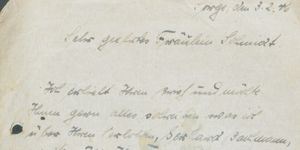 Sorge, den 3.2.46
Sehr geehrtes Fräulein Schmidt
Ich erhielt Ihren Brief und möchte
Ihnen gern alles schreiben was ich
über Ihren Verlobten, Gerhard